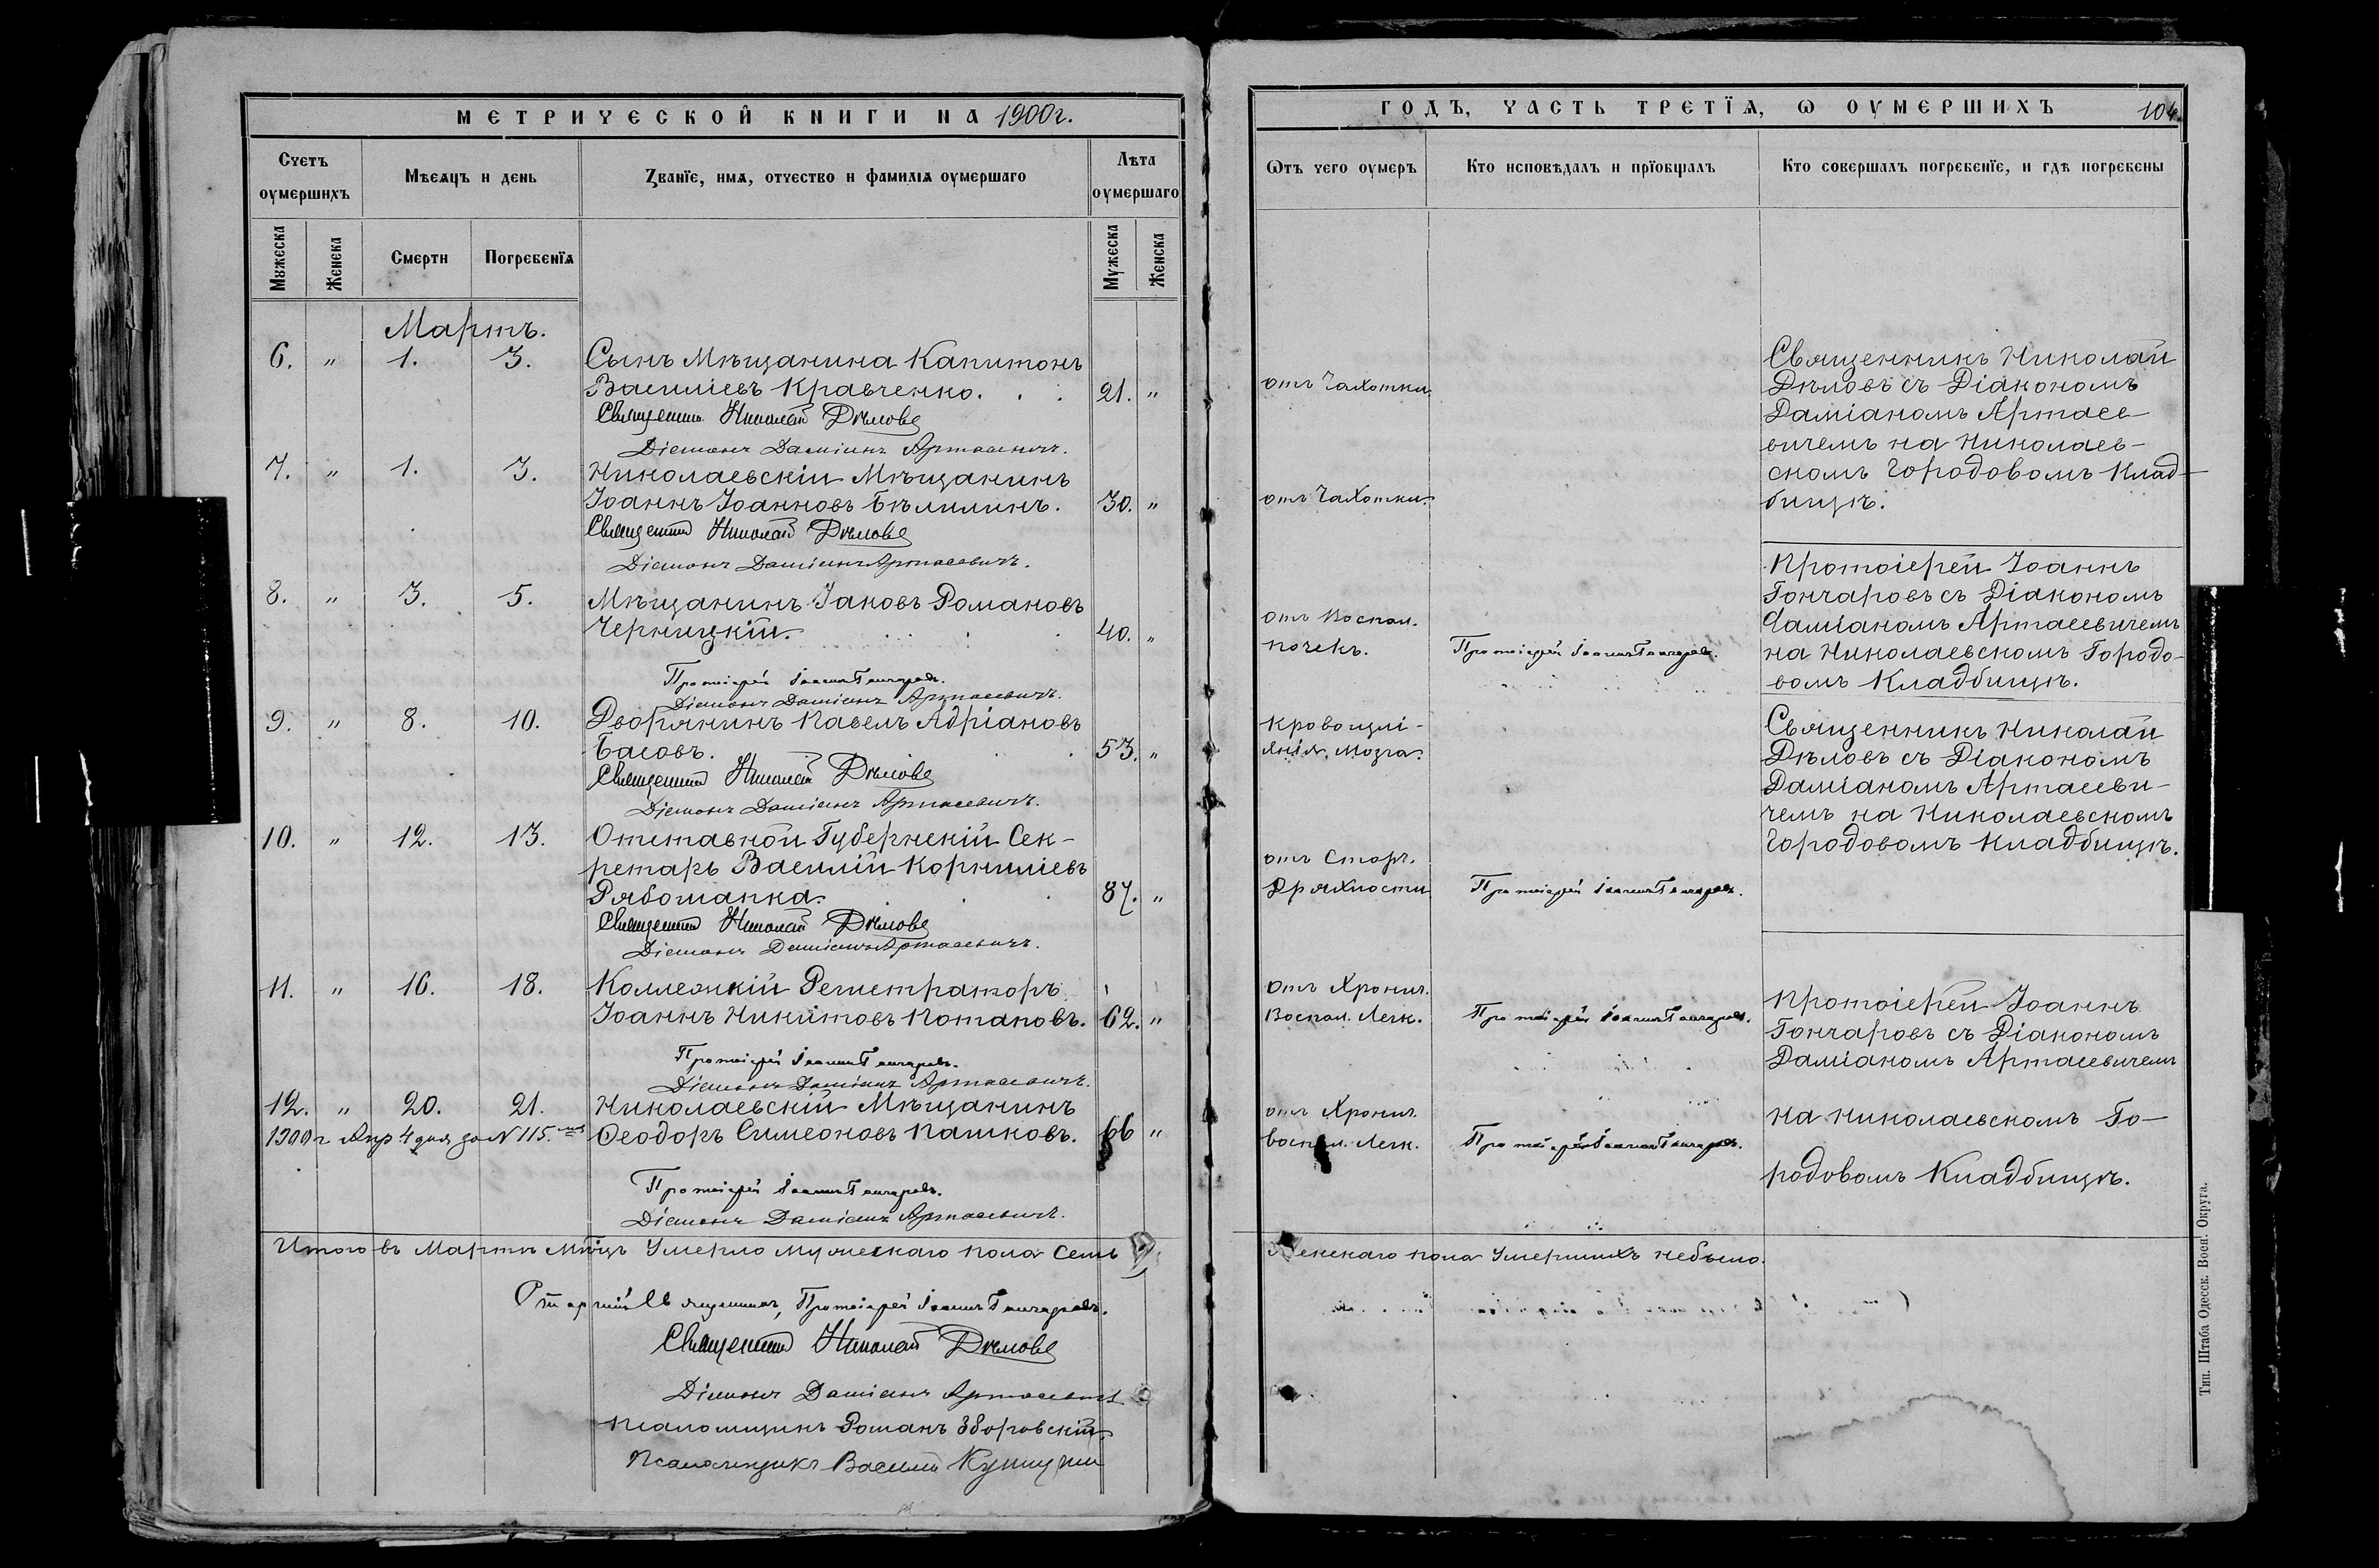 МЕТРИЧЕСКОЙ КНИГИ НА 1900 г.
Счетъ оумершихъ
Мѣсяцъ и день
Званїе, имя, отчество и фамилїя оумершаго
Лѣта оумершаго
Мужеска
Женска
Смерти
Погребенїя
Мужеска
Женска
Мартъ.
6. " 1. 3. Сынъ Мѣщанина Капитонъ
Василіевъ Кравченко. . . 21. "
Священникъ Николай Дѣловъ
Діаконъ Даміанъ Артасевичъ.
7. " 1. 3. Николаевскій Мѣщанинъ
Іоаннъ Іоанновъ Бѣлилинъ. 30. "
Священникъ Николай Дѣловъ
Діаконъ Даміанъ Артасевичъ.
8. " 3. 5. Мѣщанинъ Іаковъ Романовъ
Черницкій. 40. "
Протоіерей Іоаннъ Гончаровъ.
Діаконъ Даміанъ Артасевичъ.
9. " 8. 10. Дворянинъ Павелъ Адріановъ
Басовъ. 53. "
Священникъ Николай Дѣловъ
Діаконъ Даміанъ Артасевичъ.
10. " 12. 13. Отставной Губернскій Сек-
ретарь Василій Корниліевъ
Рябошапка. 87. "
Священникъ Николай Дѣловъ
Діаконъ Даміанъ Артасевичъ.
11. " 16. 18. Коллежскій Регистраторъ
Іоаннъ Никитовъ Потаповъ. 62. "
Протоіерей Іоаннъ Гончаровъ.
Діаконъ Даміанъ Артасевичъ.
12. " 20. 21. Николаевскій Мѣщанинъ
1900 г Апр 4 дня за N 115. Ѳеодоръ Симеоновъ Пашковъ. 66 "
Протоіерей Іоаннъ Гончаровъ.
Діаконъ Даміанъ Артасевичъ.
Итого въ Мартѣ Мѣсцѣ Умерло мужескаго пола семь
Старшій Священникъ, Протоіерей Іоаннъ Гончаровъ.
Священникъ Николай Дѣловъ
Діаконъ Даміанъ Артасевичъ
Псаломщикъ Романъ Зборовскій.
Псаломщикъ Василій
ГОДЪ, ЧАСТЬ ТРЕТЇЯ, Ѡ ОУМЕРШИХЪ 104.
Ѿтъ чего оумеръ
Кто исповѣдалъ и прїобщалъ
Кто совершалъ погребенїе, и гдѣ погребены
отъ Чахотки
Священникъ Николай
Дѣловъ съ Діакономъ
Даміаномъ Артасе-
вичемъ на Николаев-
скомъ Городовомъ Клад-
бищѣ.
отъ Чахотки.
отъ Воспал.
почекъ. Протоіерей Іоаннъ Гончаровъ.
Протоіерей Іоаннъ
Гончаровъ съ Діакономъ
Даміаномъ Артасевичемъ
на Николаевскомъ Городо-
вомъ Кладбищѣ.
Кровоизлі-
янія мозга.
Священникъ Николай
Дѣловъ съ Діакономъ
Даміаномъ Артасеви-
чемъ на Николаевскомъ
Городовомъ Кладбищѣ.
отъ Старч.
Дряхлости Протоіерей Іоаннъ Гончаровъ.
отъ Хронич.
Воспал. Легк. Протоіерей Іоаннъ Гончаровъ.
Протоіерей Іоаннъ
Гончаровъ съ Діакономъ
Даміаномъ Артасевичемъ
на Николаевскомъ Го-
родовомъ Кладбищѣ.
отъ Хронич.
воспал. Легк. Протоіерей Іоаннъ Гончаровъ.
Женскаго пола Умершихъ небыло.
Тип. Штаба Одесск. Воен. Округа.